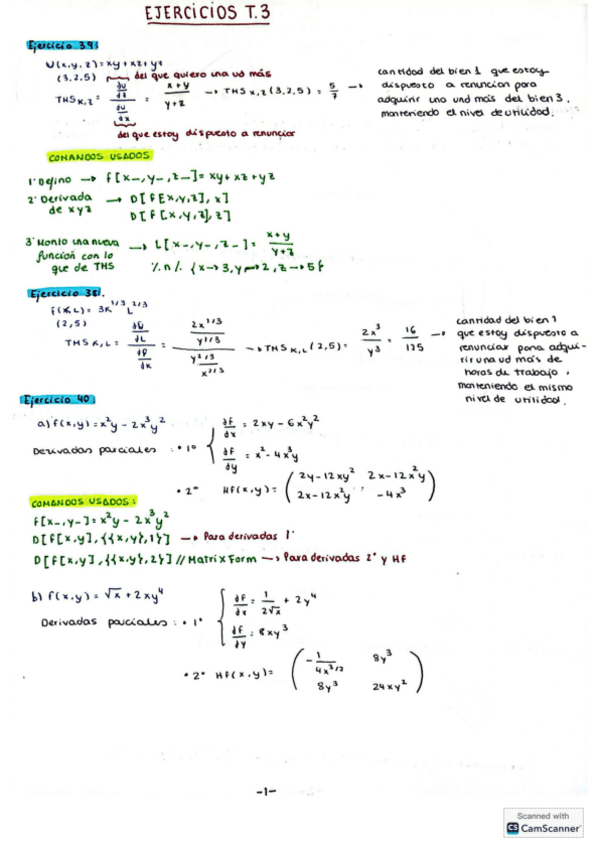 EJERCICIOS T.3
Ejercicio 39:
U(x,y,z)=xy+xz+yz
(3,2,5) del que quiero una ud más
THS x,z = (dU/dz)/(dU/dx) = (x+y)/(y+z) → THS x,z (3,2,5) = 5/7 →
del que estoy dispuesto a renunciar
cantidad del bien 1 que estoy
dispuesto a renunciar para
adquirir una und más del bien 3,
manteniendo el nivel de utilidad.
COMANDOS USADOS
1º Defino → f[x_,y_,z_]= xy+xz+yz
2º Derivada → D[f[x,y,z],x]
de xyz D[f[x,y,z],z]
3º Monto una nueva → L[x_,y_,z_]= (x+y)/(y+z)
función con lo
que de THS %n/. {x→3,y→2,z→5}
Ejercicio 38:
f(K,L)= 3K^1/3 L^2/3
(2,5)
THS K,L = (dQ/dL)/(dP/dK) = (2x^1/3 / y^1/3)/(y^2/3 / x^2/3) → THS K,L (2,5) = 2x^3/y^3 = 16/125 →
cantidad del bien 1
que estoy dispuesto a
renunciar para adqui-
rir una ud más de
horas de trabajo,
manteniendo el mismo
nivel de utilidad.
Ejercicio 40:
a) f(x,y)=x²y - 2x³y²
Derivadas parciales: • 1º { df/dx = 2xy - 6x²y²
df/dy = x² - 4x³y
• 2º Hf(x,y)= (2y-12xy² 2x-12x²y
2x-12x²y -4x³)
COMANDOS USADOS:
f[x_,y_]=x²y - 2x³y²
D[f[x,y],{{x,y},1}] → Para derivadas 1º
D[f[x,y],{{x,y},2}]//MatrixForm → Para derivadas 2º y HF
b) f(x,y)= √x + 2xy⁴
Derivadas parciales: • 1º { df/dx = 1/(2√x) + 2y⁴
df/dy = 8xy³
• 2º Hf(x,y)= (-1/(4x^3/2) 8y³
8y³ 24xy²)
-1-
Scanned with
CS CamScanner